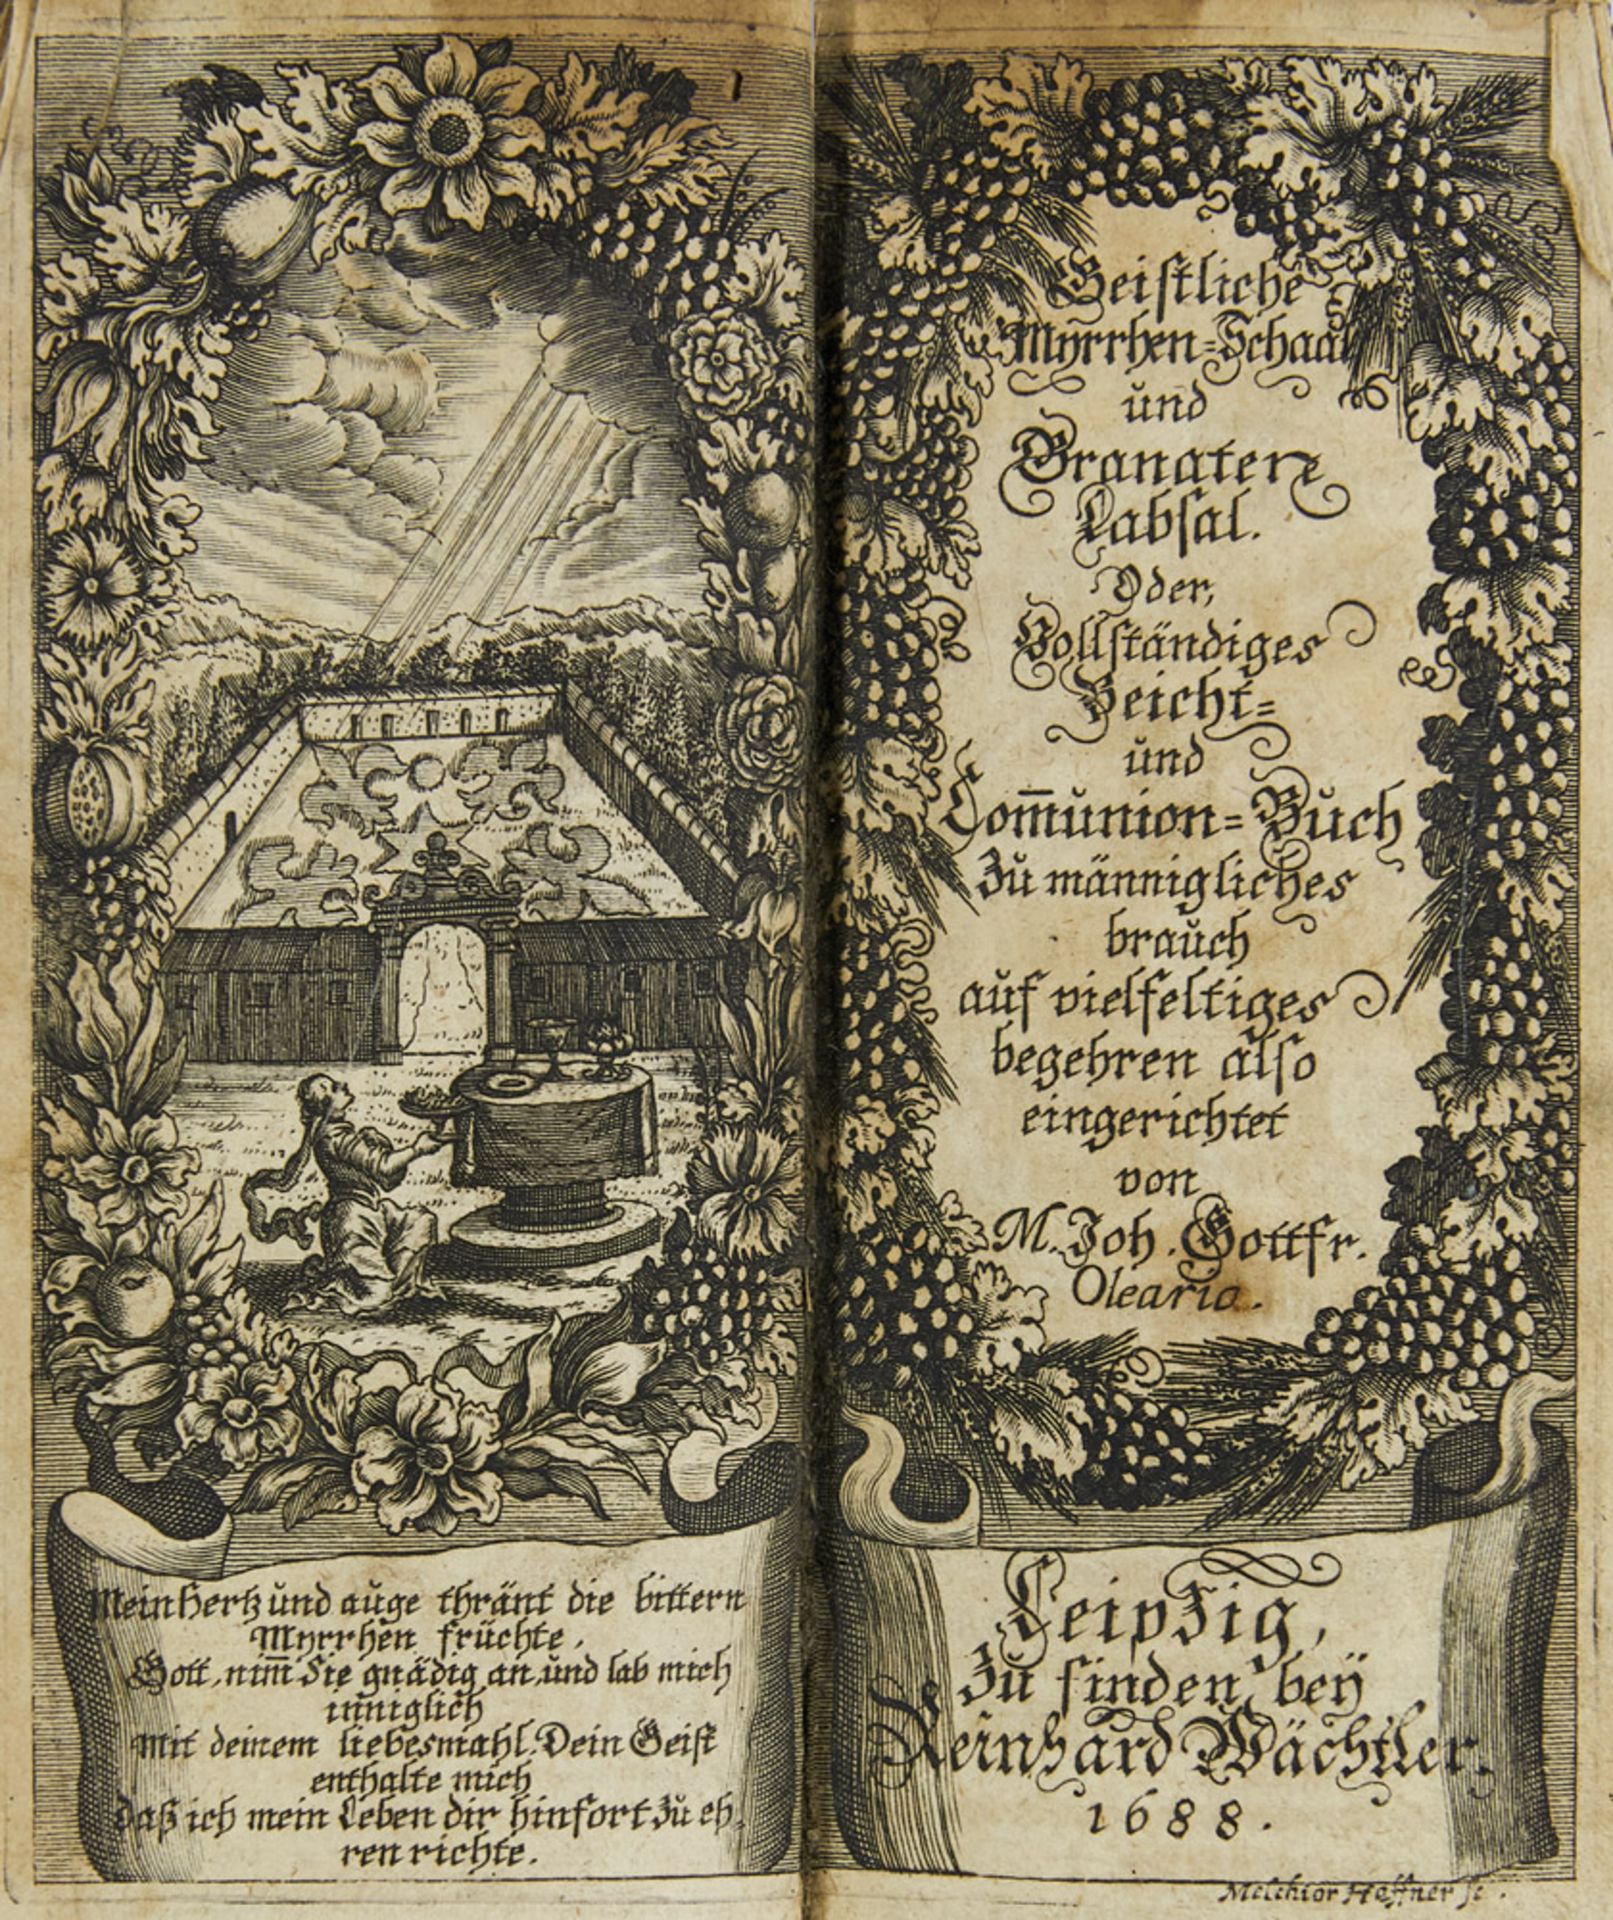 Mein Hertz und auge thränt die bittern
Myrrhen früchte,
Gott, nim̄ Sie gnädig an, und lab mich
inniglich
Mit deinem liebesmahl. Dein Geist
enthalte mich
daß ich mein Leben dir hinfort zu eh-
ren richte.
Geistliche
Myrrhen=Schaal
und
Granaten
Labsal.
Oder,
Vollständiges
Beicht=
und
Com̄union=Buch
Zu männigliches
brauch
auf vielfeltiges
begehren also
eingerichtet
von
M. Joh. Gottfr.
Oleario.
Leipzig,
Zu finden beÿ
Reinhard Wächtler.
1688.
Melchior Haffner sc.